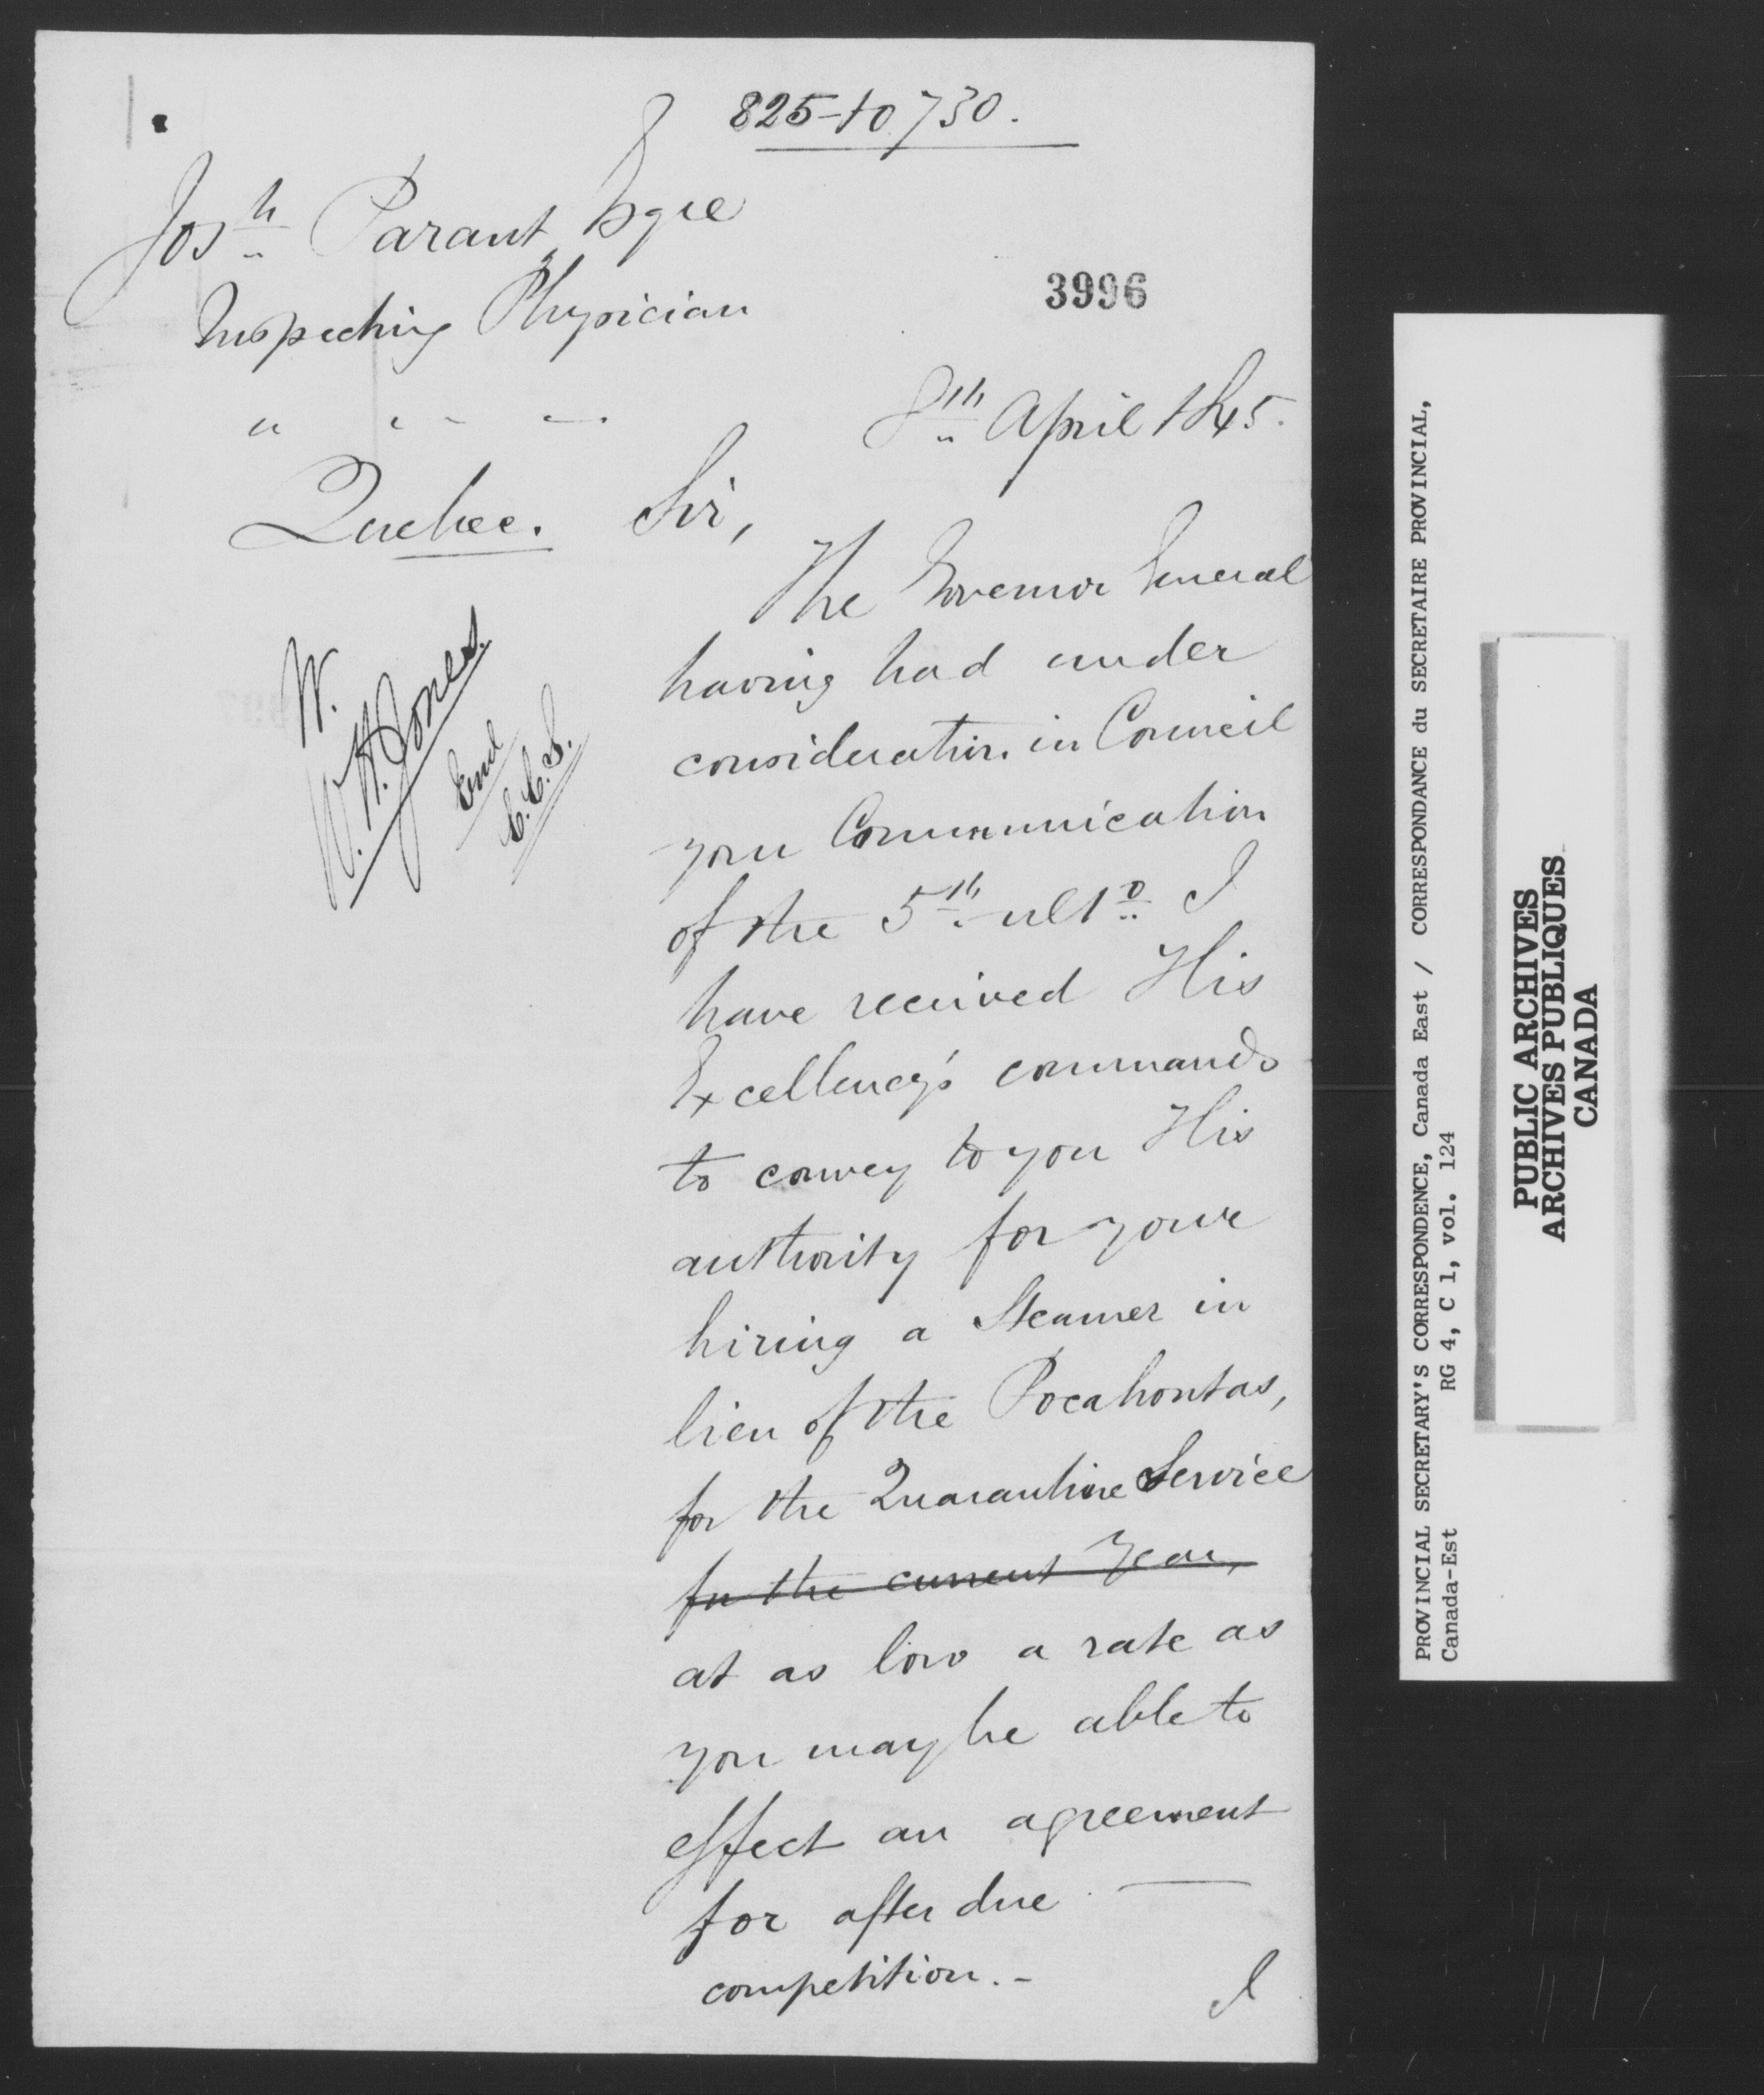 825-to 730.
Josh Parant Esqre
Inspecting Physician
3996
" " " "
8th April 1845.
Quebec. Sir,
The Governor General
having had under
consideration in Council
your Communication
of the 5th ulto I
have received His
Excellency's commands
to convey to you His
authority for your
hiring a Steamer in
lieu of the Pocahontas,
for the Quarantine Service
for the current year,
at as low a rate as
you may be able to
effect an agreement
for after due
competition.-
I
W.
H. Jones.
End
C.C.S.
PROVINCIAL SECRETARY'S CORRESPONDENCE, Canada East / CORRESPONDANCE du SECRETAIRE PROVINCIAL,
Canada-Est RG 4, C 1, vol. 124
PUBLIC ARCHIVES
ARCHIVES PUBLIQUES
CANADA